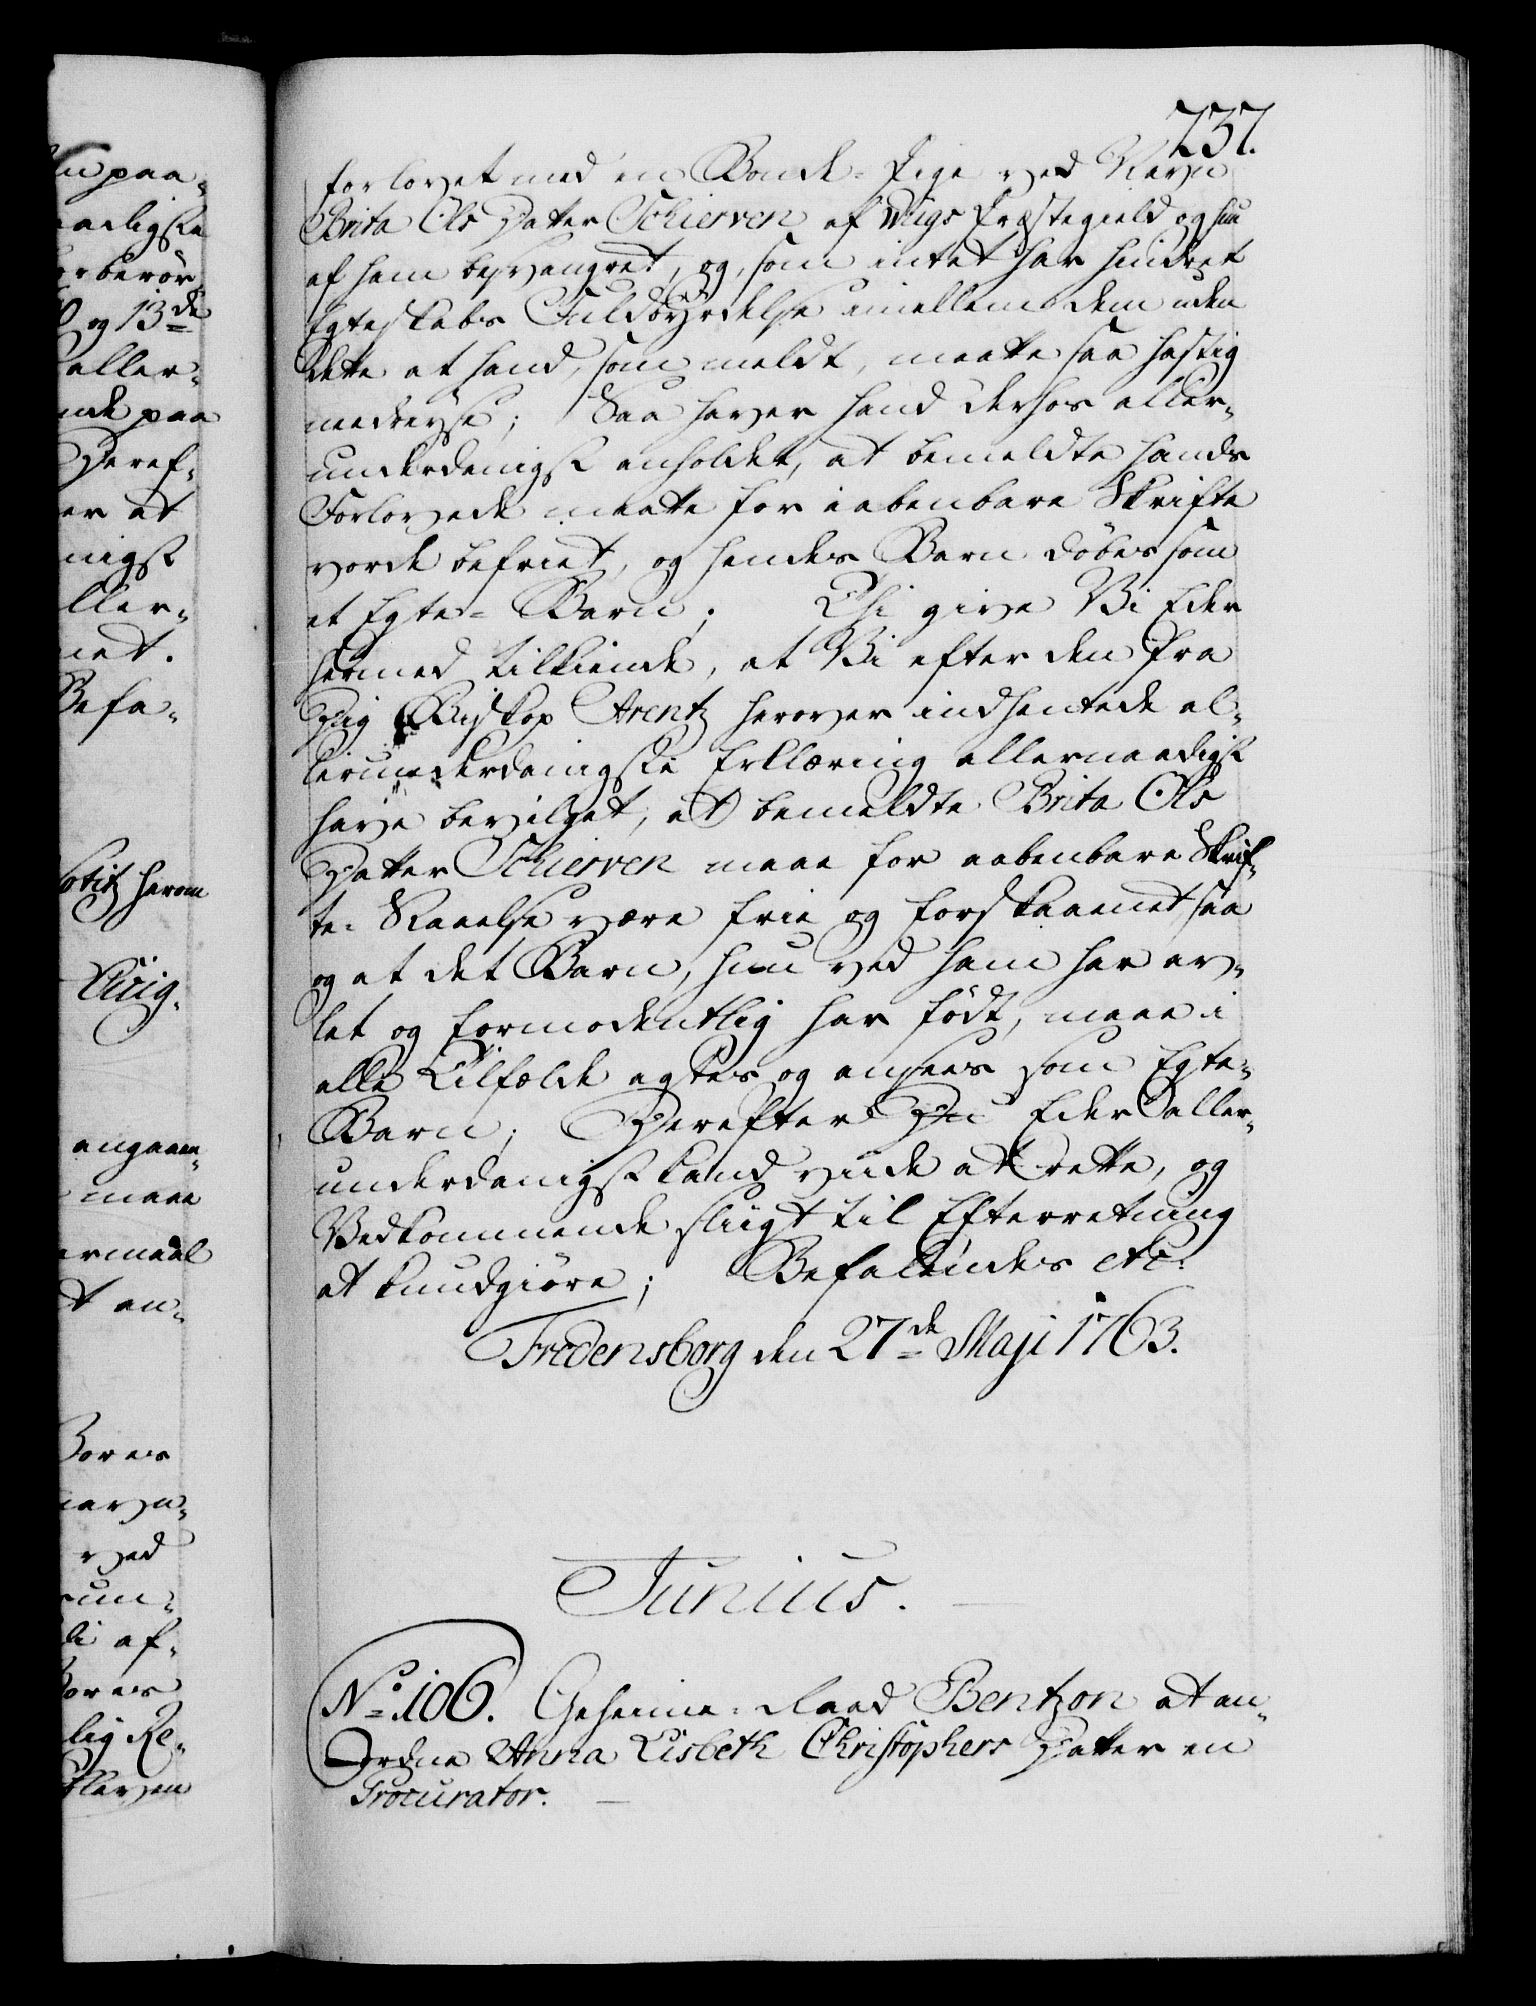 237.
forlovet med en Bonde-Pige ved Navn
Brita Ols Datter Schierven af Wigs Præstegield og hun
af ham besvangret, og, som intet har hindret
Egteskabs Fuldbyrdelse imellem dem uden
dette at hand, som meldt, maatte saa hastig
nedreyse; Saa haver hand derhos aller-
underdanigst anholdet, at bemeldte hands
Forlovede maatte for aabenbare Skrifte
vorde befriet, og hendes Barn döbes som
et Egte-Barn; Thi give Vi Eder
hermed tilkiende, at Vi efter den fra
Dig Biskop Arentz herover indhentede al-
lerunderdanigste Erklæring allernaadigst
have bevilget, at bemeldte Brita Ols
Datter Schierven maae for aabenbare Skrif-
te-Staaelse være frie og forskaanet saa
og at det Barn, hun ved ham har av-
let og formodentlig har födt, maae i
alle Tilfælde agtes og ansees som Egte-
Barn; Derefter I Eder aller-
underdanigst kand vide at rette, og
Vedkommende sligt til Efterretning
at kundgiöre; Befalendes etc.
Fredensborg den 27de Maji 1763.
Junius.
No. 106. Geheime-Raad Bentzon at an-
ordne Anna Lisbeth Christophers Datter en
Procurator.
paa-
og 13de
aller-
nde paa
Deref-
er at
nigst
ller-
Befa-
herom
angaaen-
maae
an-
ved
af-